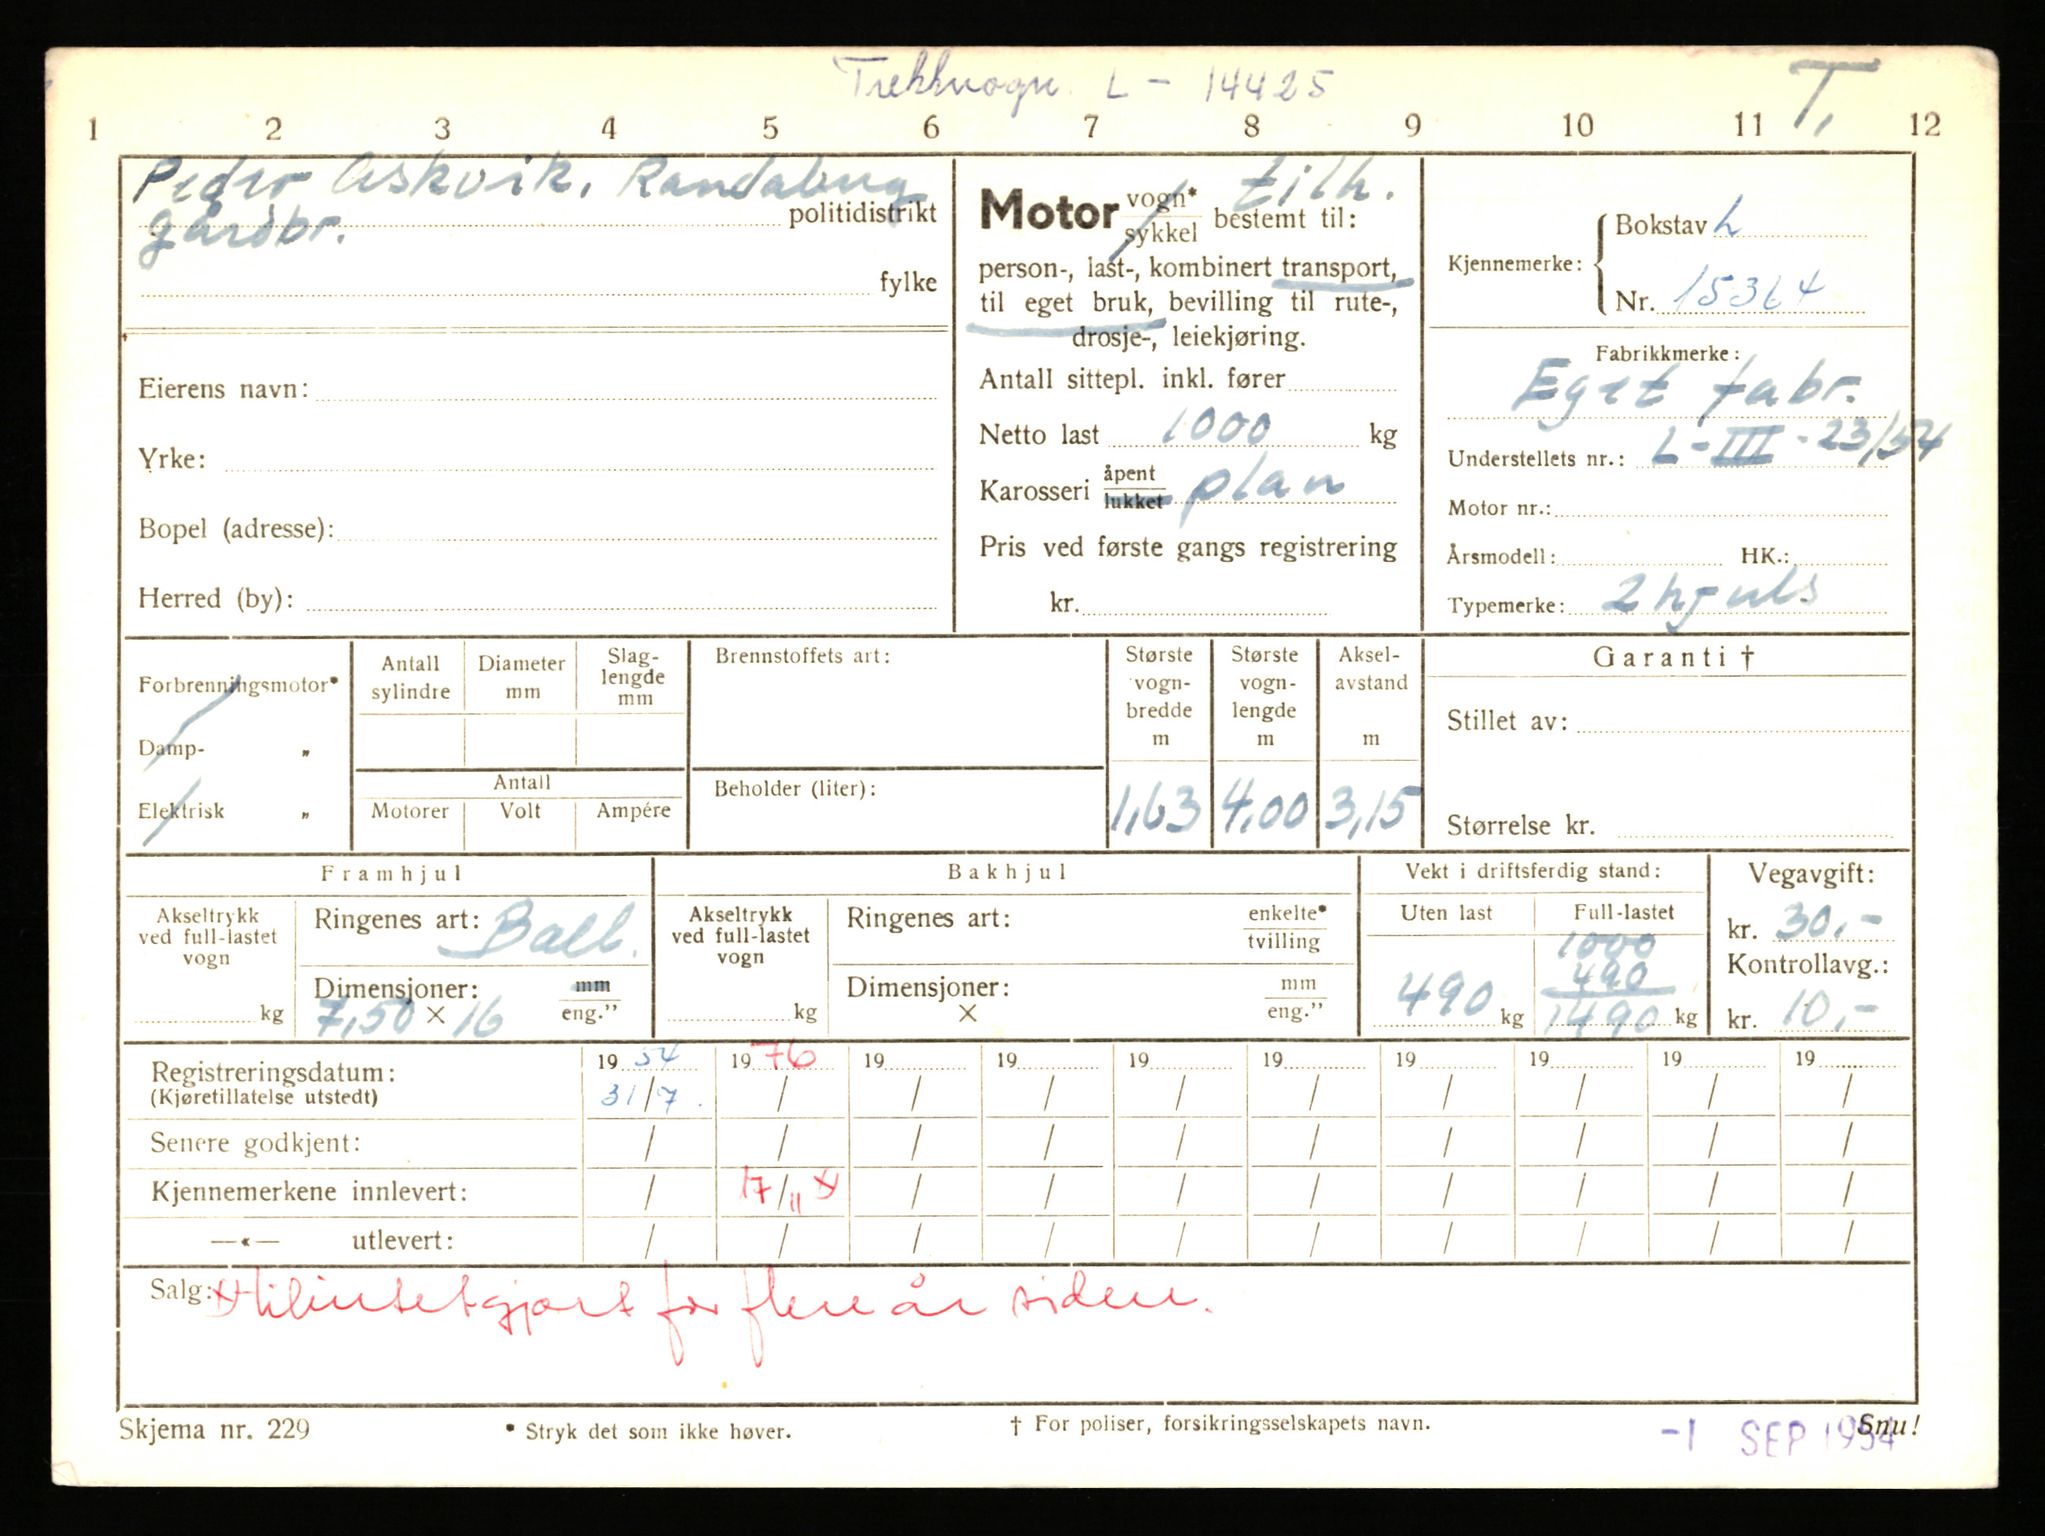 Trekkvogn L - 14425
T,
1 2 3 4 5 6 7 8 9 10 11 12
Peder Askvik, Randaberg
politidistrikt
gårdbr.
fylke
Eierens navn:
Yrke:
Bopel (adresse):
Herred (by):
Motor vogn* / sykkel bestemt til: tilh.
person-, last-, kombinert transport,
til eget bruk, bevilling til rute-,
drosje-, leiekjøring.
Antall sittepl. inkl. fører
Netto last 1000 kg
Karosseri åpent / lukket plan
Pris ved første gangs registrering
kr.
Kjennemerke: Bokstav L
Nr. 15364
Fabrikkmerke:
Eget fabr.
Understellets nr.: L-III-23/54
Motor nr.:
Årsmodell: HK.:
Typemerke: 2 hjuls
Forbrenningsmotor*
Damp- „
Elektrisk „
Antall sylindre
Diameter mm
Slag-lengde mm
Antall
Motorer Volt Ampére
Brennstoffets art:
Beholder (liter):
Største vogn-bredde m 1,63
Største vogn-lengde m 4,00
Aksel-avstand m 3,15
Garanti †
Stillet av:
Størrelse kr.
Framhjul
Akseltrykk ved full-lastet vogn kg
Ringenes art: Ball.
Dimensjoner: mm / eng."
7,50 × 16
Bakhjul
Akseltrykk ved full-lastet vogn kg
Ringenes art: enkelte* / tvilling
Dimensjoner: mm / eng."
×
Vekt i driftsferdig stand:
Uten last Full-lastet
1000
490
490 kg 1490 kg
Vegavgift:
kr. 30,-
Kontrollavg.:
kr. 10,-
Registreringsdatum: 19 54 19 76 19 19 19 19 19 19 19 19
(Kjøretillatelse utstedt) 31/7. / / / / / / / / /
Senere godkjent: / / / / / / / / / /
Kjennemerkene innlevert: / 17/11 x / / / / / / / /
—«— utlevert: / / / / / / / / / /
Salg: x tilintetgjort for flere år siden.
Skjema nr. 229 * Stryk det som ikke høver. † For poliser, forsikringsselskapets navn. Snu!
-1 SEP 1954